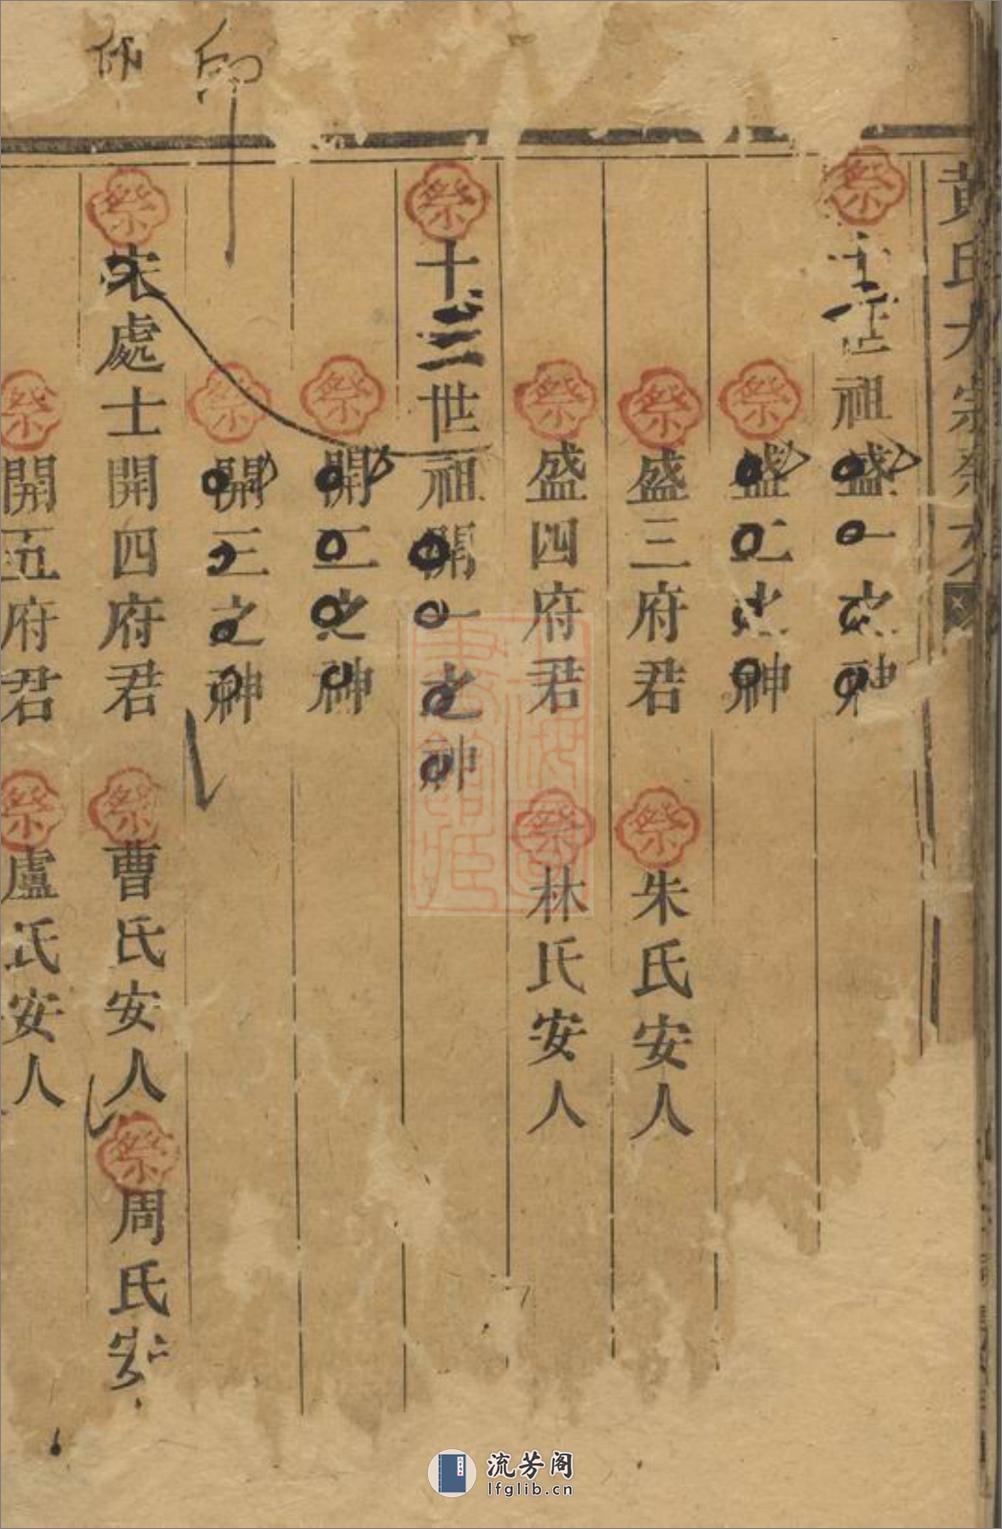 黃氏大宗祭
祭
世祖盛一之神
祭
盛二之神
祭
盛三府君
祭
朱氏安人
祭
盛四府君
祭
林氏安人
祭
十三世祖開一之神
祭
開二之神
祭
開三之神
祭
宋處士開四府君
祭
曹氏安人
祭
周氏安
祭
開五府君
祭
盧氏安人
流芳阁
lfglib.cn